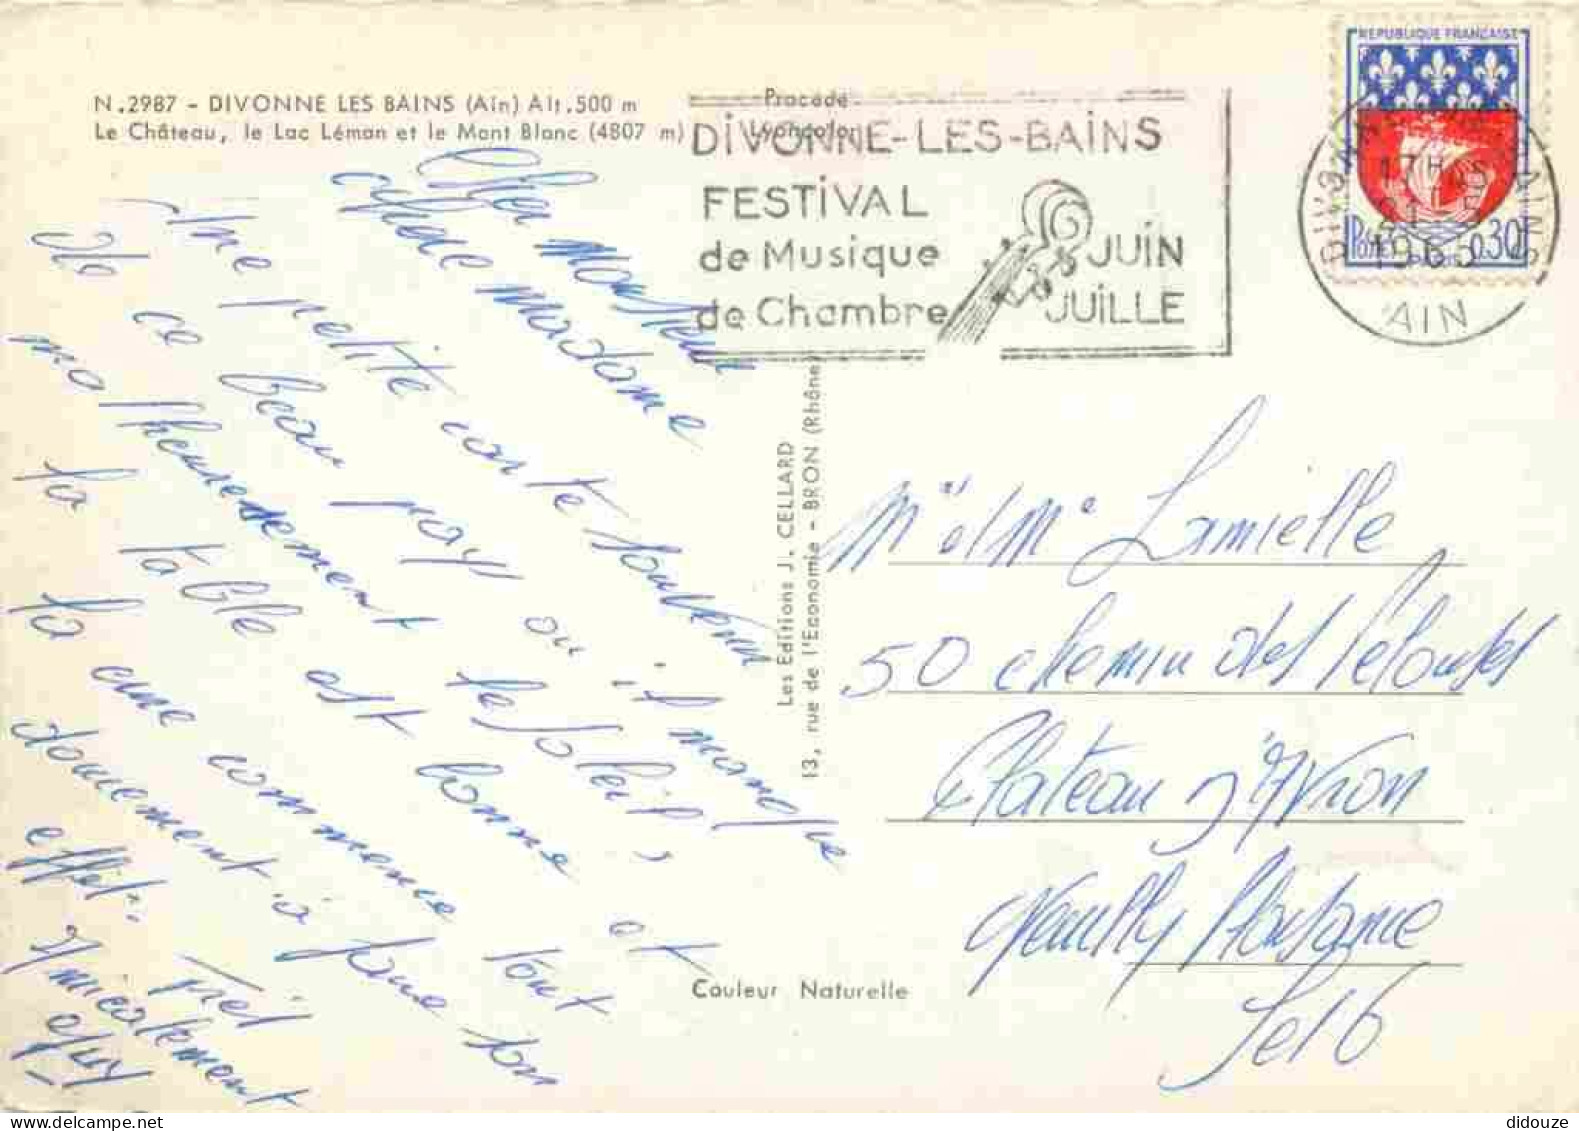 N.2987 - DIVONNE LES BAINS (Ain) Alt.500 m
Le Château, le Lac Léman et le Mont Blanc (4807 m)
Procédé
Lyoncolor
DIVONNE-LES-BAINS
FESTIVAL
de Musique
de Chambre
JUIN
JUILLE
REPUBLIQUE FRANÇAISE
0.30
17 H
21 - 5
1965
AIN
Cher Monsieur
Chère Madame
Une petite carte souvenir
de ce beau pays ou il manque
malheureusement le soleil,
la table est bonne et
la cure commence tout
doucement à faire son
effet.
Amicalement
Guy
Les Editions J. CELLARD
13, rue de l'Economie - BRON (Rhône)
Couleur Naturelle
Mr et Me Lamielle
50 chemin des Pelouses
Plateau d'Avron
Neuilly Plaisance
S et O
didouze